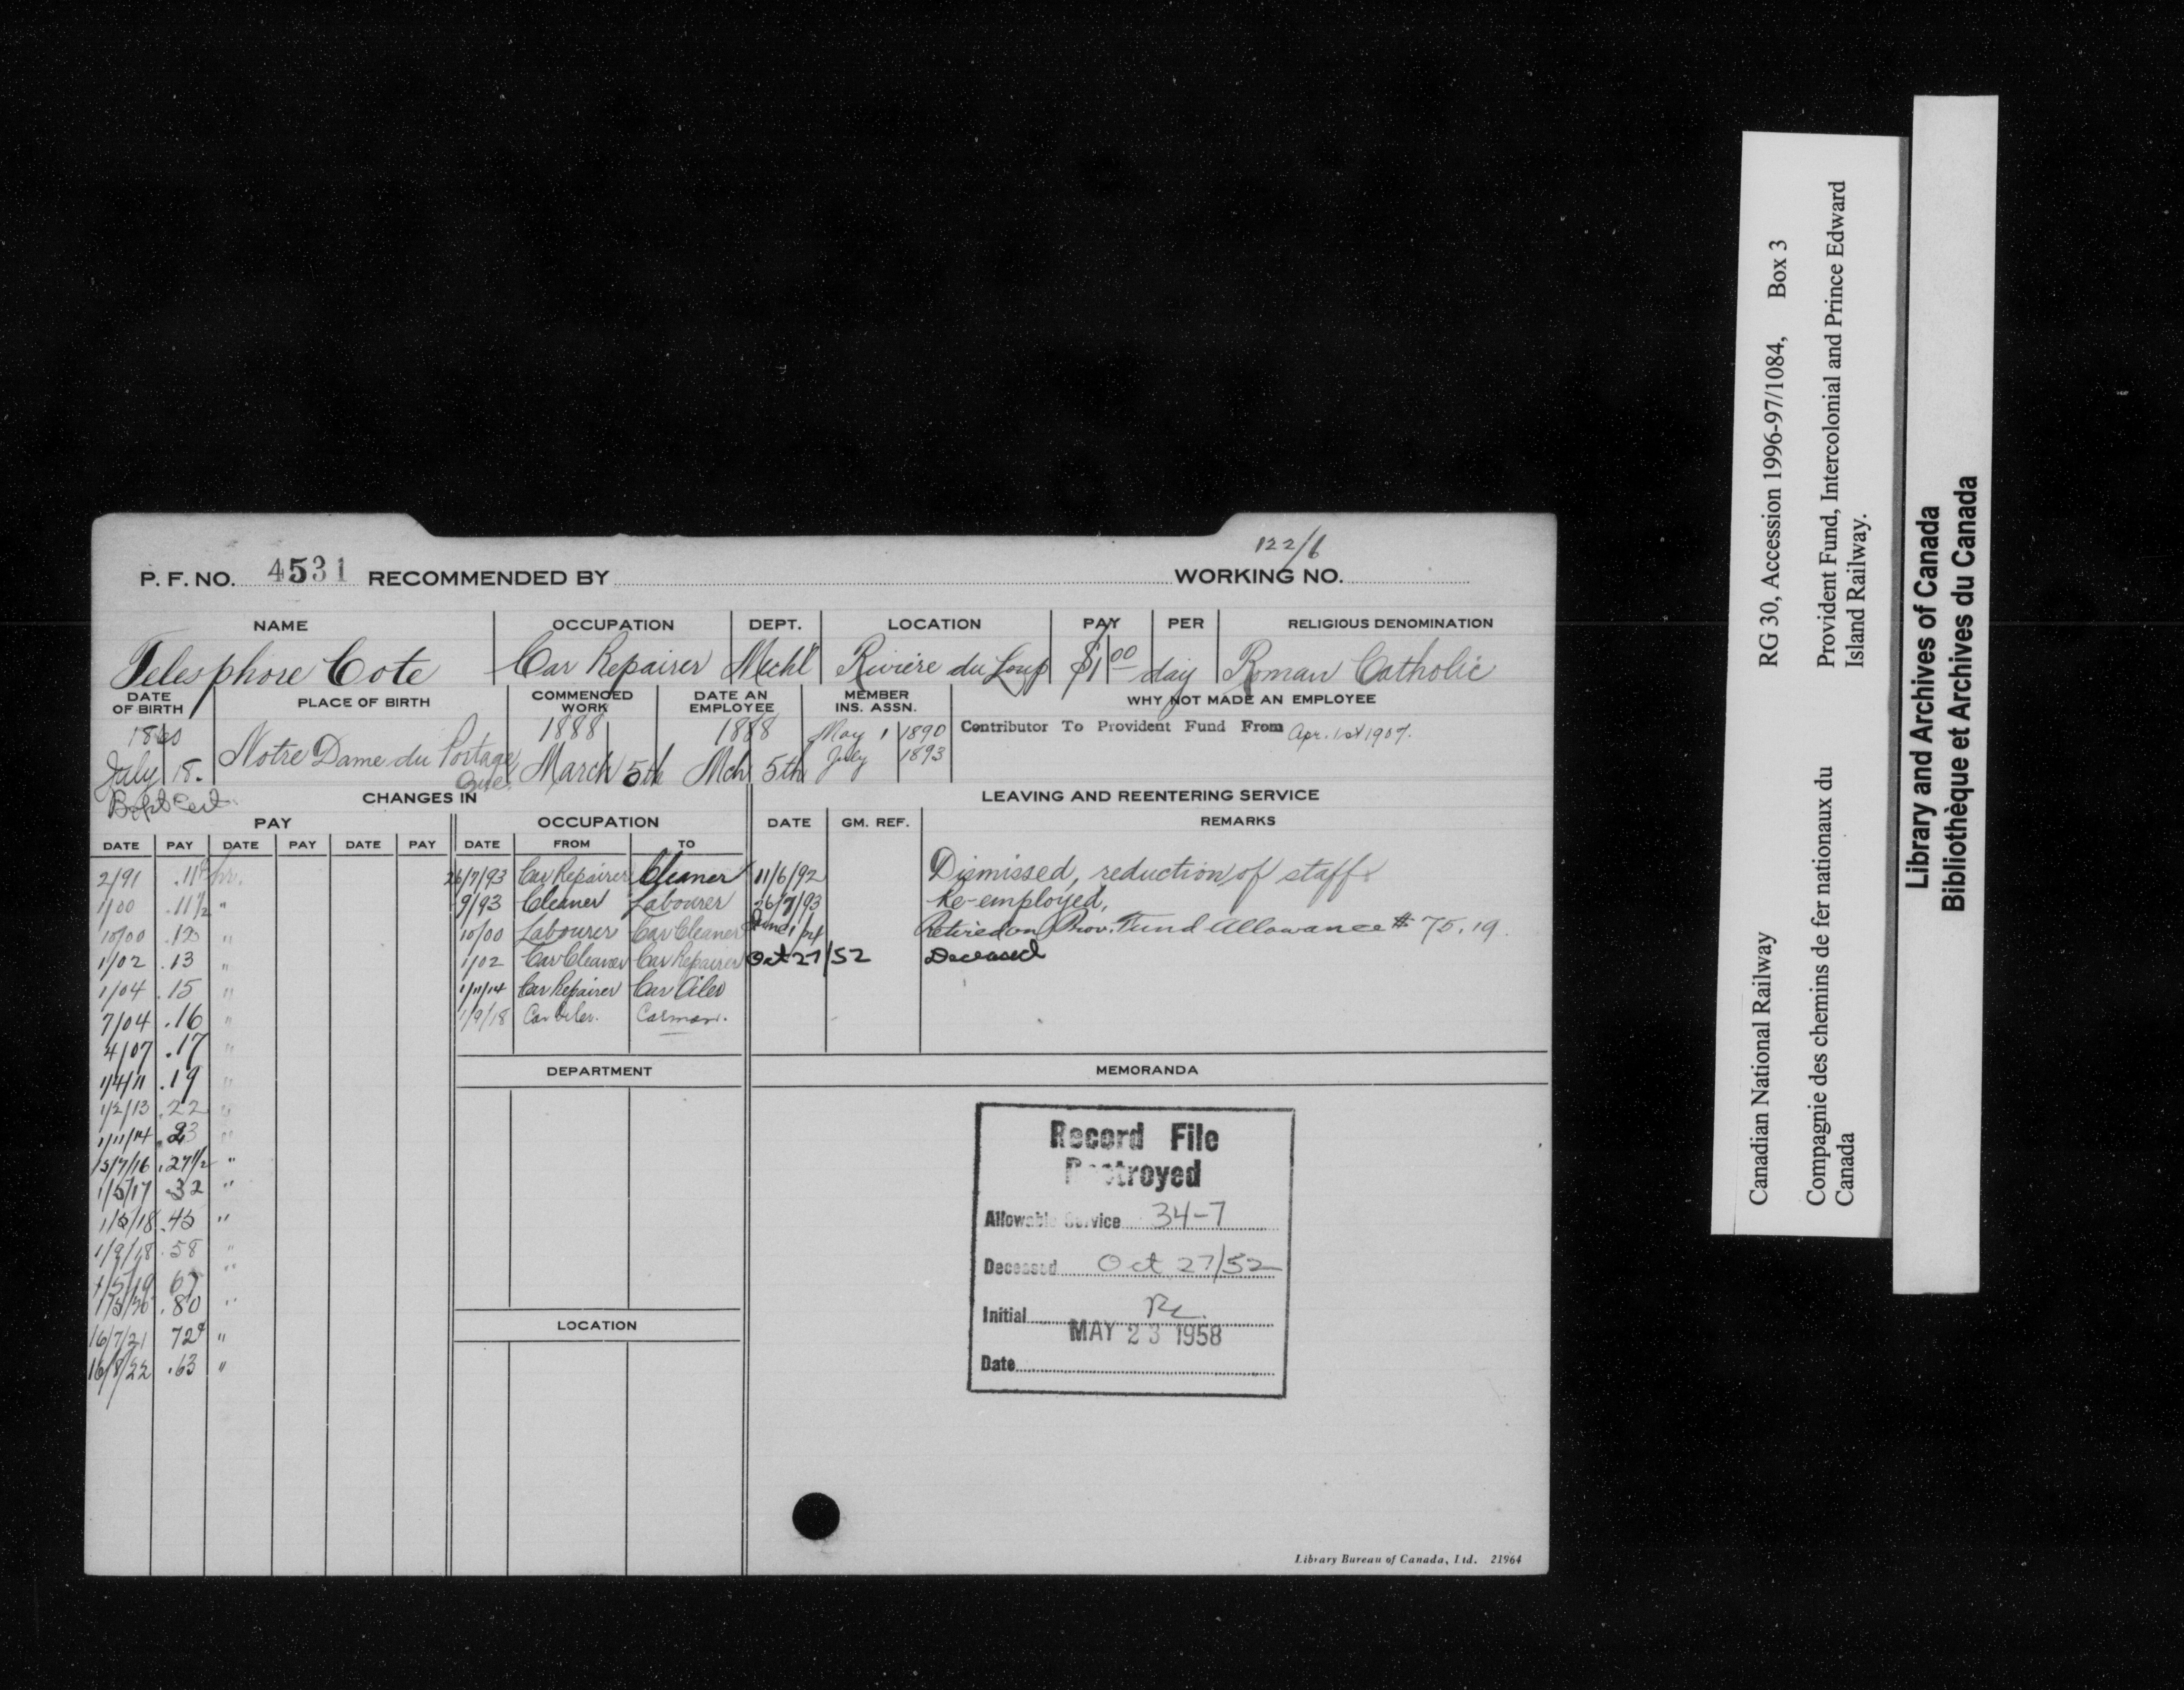 122/6
P. F. NO. 4531 RECOMMENDED BY WORKING NO.
NAME OCCUPATION DEPT. LOCATION PAY PER RELIGIOUS DENOMINATION
Telesphore Cote Car Repairer Mechl Riviere du Loup $1 00 day Roman Catholic
DATE OF BIRTH PLACE OF BIRTH COMMENCED WORK DATE AN EMPLOYEE MEMBER INS. ASSN. WHY NOT MADE AN EMPLOYEE
1888 1888 May 1 1890 Contributor To Provident Fund From Apr. 1st 1907.
July 18. Notre Dame du Portage Que. March 5th Mch 5th July 1893
Bapt Cert
CHANGES IN LEAVING AND REENTERING SERVICE
PAY OCCUPATION DATE GM. REF. REMARKS
DATE PAY DATE PAY DATE PAY DATE FROM TO
2/91 hr. 26/7/93 Car Repairer Cleaner 11/6/92 Dismissed, reduction of staff.
1/00 .11½ " 9/93 Cleaner Labourer 26/7/93 Re-employed,
10/00 " 10/00 Labourer Car Cleaner June 1/24 Retired on Prov. Fund Allowance # 75.19.
1/02 .13 " 1/02 Car Cleaner Car Repairer Oct 27/52 Deceased
1/04 .15 " 1/11/14 Car Repairer Car Oiler
7/04 .16 " 1/9/18 Car Oiler. Carman.
4/07 .17 "
1/4/11 .19 "
1/2/13 .22 "
1/11/14 .23 "
15/7/16 .27½ "
1/5/17 .32 "
1/5/18 .45 "
1/9/18 .58 "
1/5/19 67 "
1/5/20 .80 "
16/7/21 72 "
16/8/22 .63 "
DEPARTMENT MEMORANDA
LOCATION
Record File
Destroyed
Allowable Service 34-7
Deceased Oct 27/52
Initial
MAY 23 1958
Date
Library Bureau of Canada, Ltd. 21964
Canadian National Railway RG 30, Accession 1996-97/1084, Box 3
Compagnie des chemins de fer nationaux du Canada
Provident Fund, Intercolonial and Prince Edward Island Railway.
Library and Archives of Canada
Bibliothèque et Archives du Canada